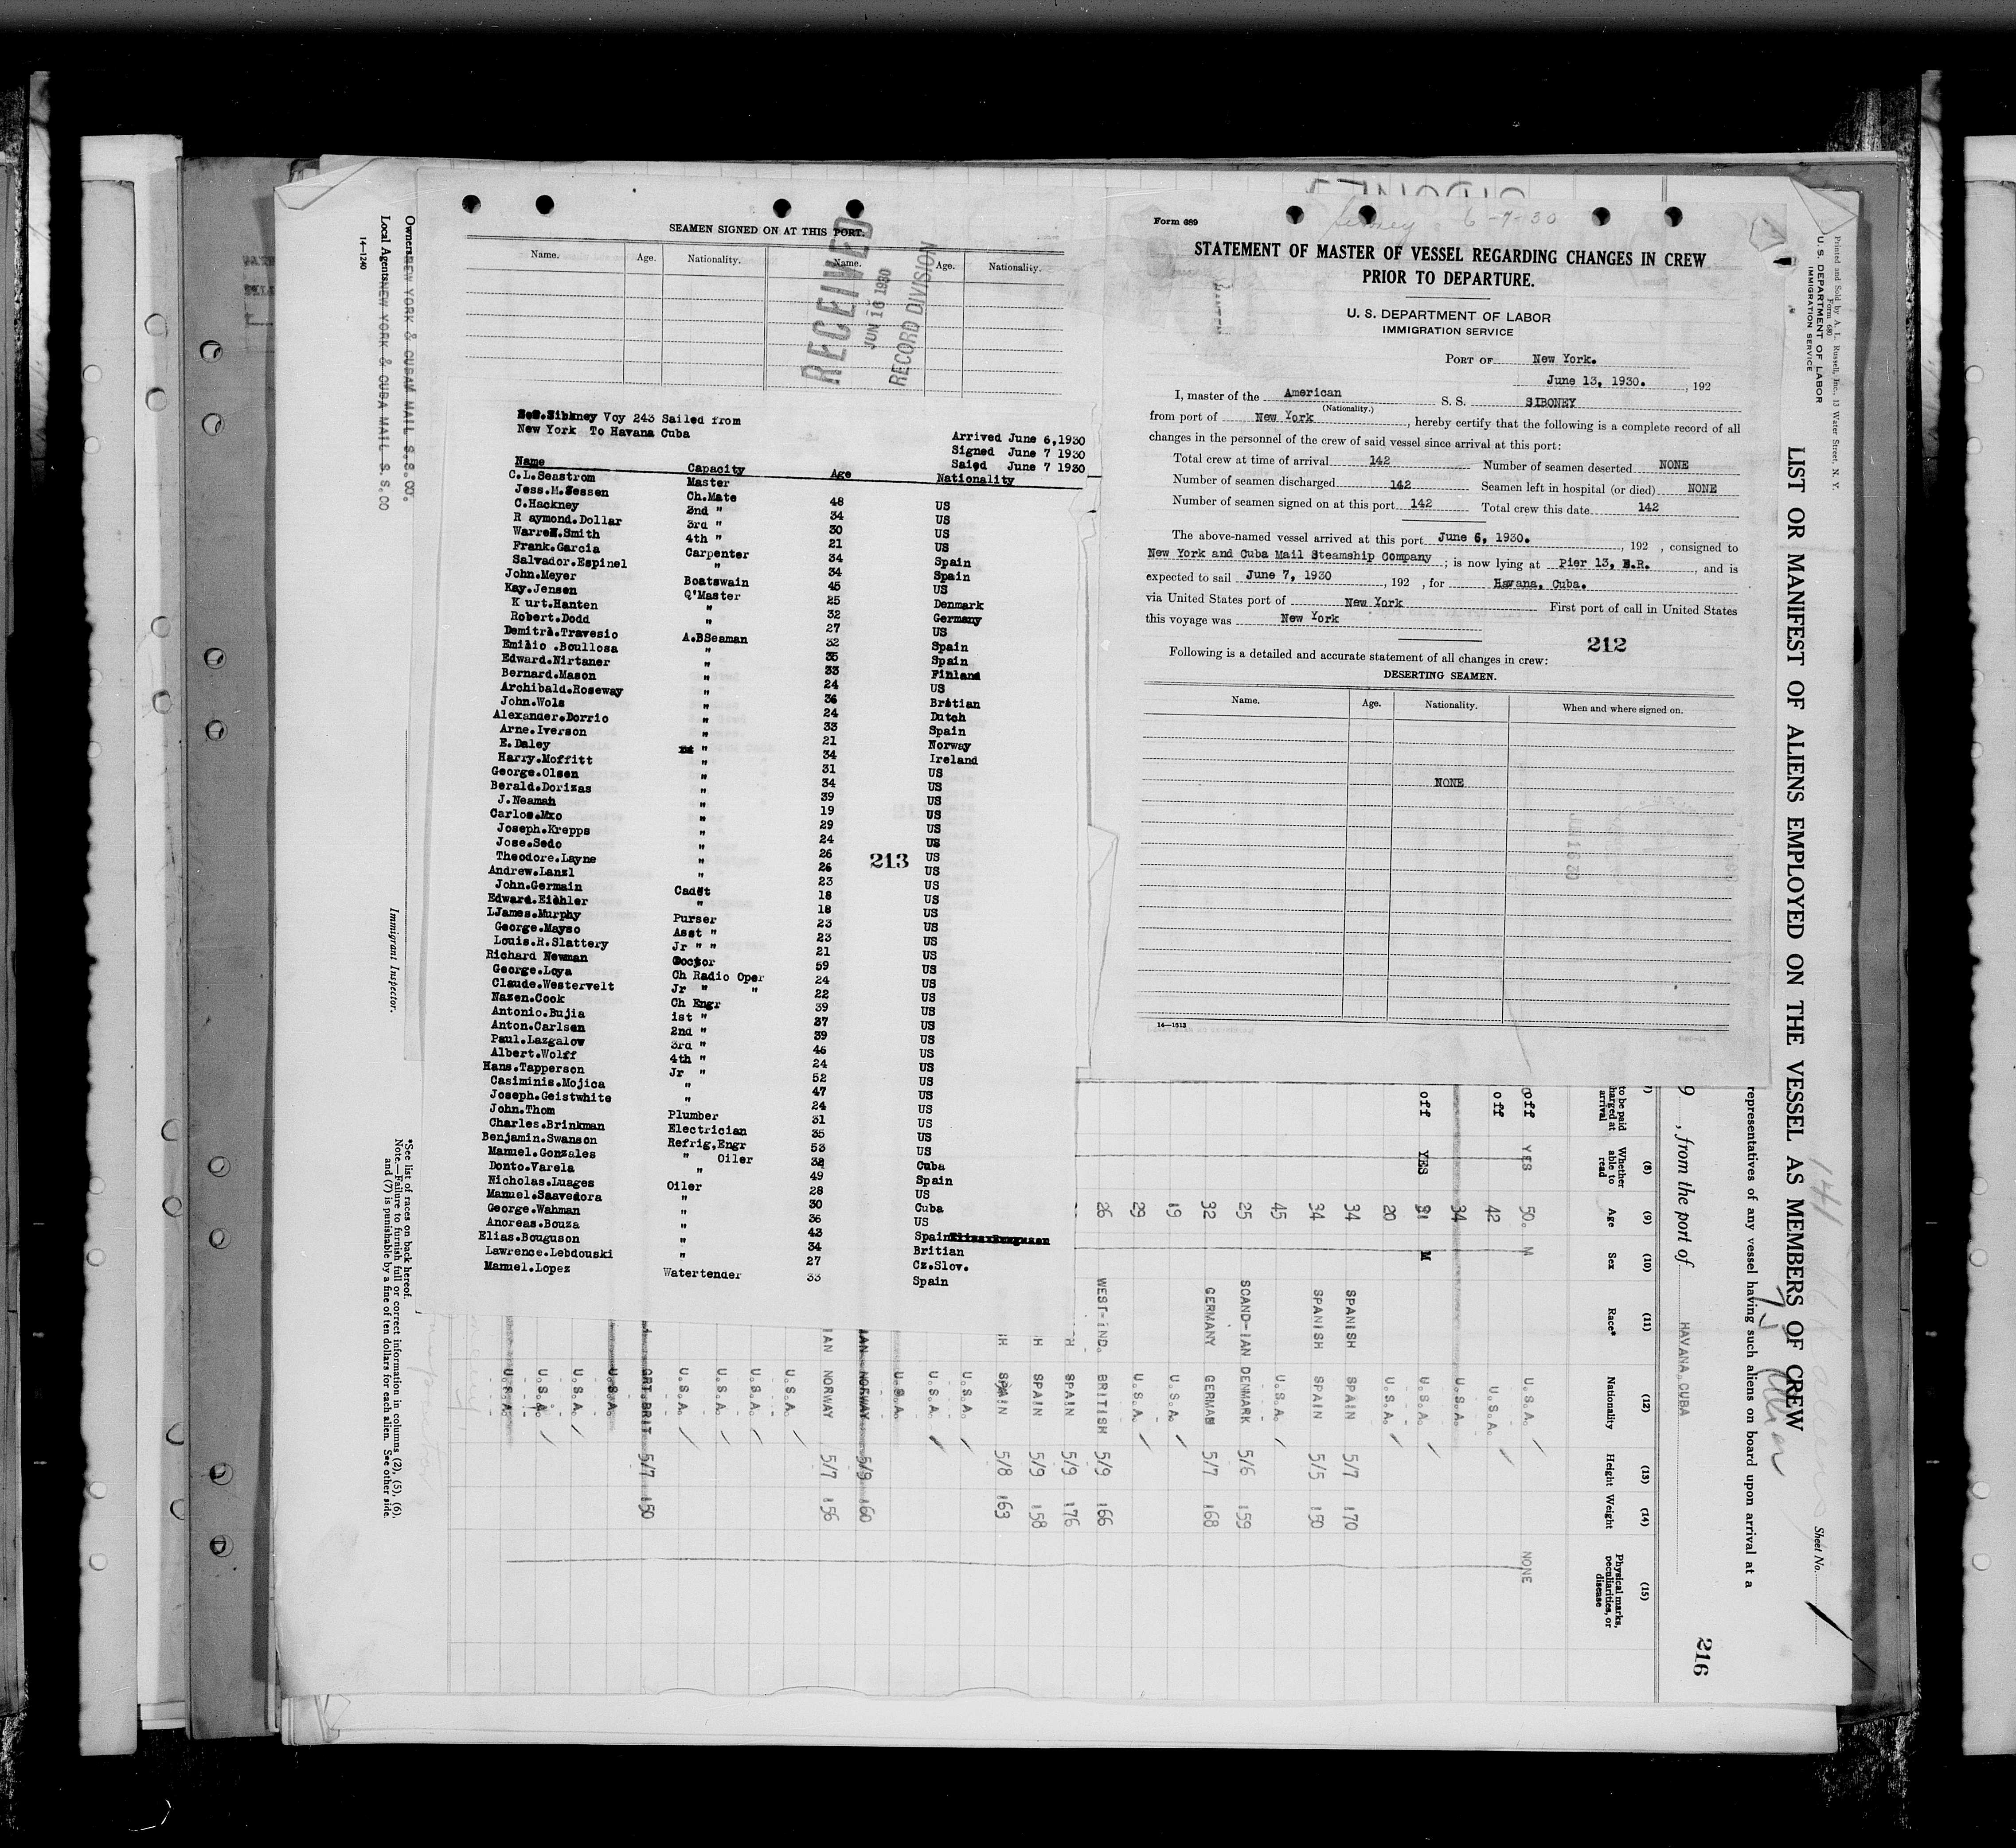 SEAMEN SIGNED ON AT THIS PORT.
Name. Age. Nationality. Name. Age. Nationality.
RECEIVED
JUN 16 1930
RECORD DIVISION
Voy 243 Sailed from
New York To Havana Cuba
Arrived June 6,1930
Signed June 7 1930
Saied June 7 1930
Name Capacity Age Nationality
C.L.Seastrom Master
Jess.M.Jessen Ch.Mate 48 US
C.Hackney 2nd " 34 US
R aymond.Dollar 3rd " 30 US
Warren.Smith 4th " 21 US
Frank.Garcia Carpenter 34 Spain
Salvador.Espinel " 34 Spain
John.Meyer Boatswain 45 US
Kay.Jensen Q'Master 25 Denmark
K urt.Hanten " 32 Germany
Robert.Dodd " 27 US
Demitri.Travesio A.BSeaman 32 Spain
Emilio .Boullosa " 35 Spain
Edward.Nirtaner " 33 Finland
Bernard.Mason " 24 US
Archibald.Roseway " 36 Britian
John.Wols " 24 Dutch
Alexander.Dorrio " 33 Spain
Arne.Iverson " 21 Norway
E.Daley " 34 Ireland
Harry.Moffitt " 31 US
George.Olsen " 34 US
Berald.Dorizas " 39 US
J.Neaman " 19 US
Carlos.Mxo " 29 US
Joseph.Krepps " 24 US
Jose.Sedo " 26 US
Theodore.Layne " 26 US
Andrew.Lanzl " 23 US
John.Germain Cadet 18 US
Edward.Eichler " 18 US
LJames.Murphy Purser 23 US
George.Mayso Asst " 23 US
Louis.R.Slattery Jr " " 21 US
Richard Newman Doctor 59 US
George.Loya Ch Radio Oper 24 US
Claude.Westervelt Jr " " 22 US
Nazen.Cook Ch Engr 39 US
Antonio.Bujia 1st " 37 US
Anton.Carlsen 2nd " 39 US
Paul.Lazgalow 3rd " 46 US
Albert.Wolff 4th " 24 US
Hans.Tapperson Jr " 52 US
Casiminis.Mojica " 47 US
Joseph.Geistwhite " 24 US
John.Thom Plumber 31 US
Charles.Brinkman Electrician 35 US
Benjamin.Swanson Refrig,Engr 53 US
Manuel.Gonzales " Oiler 38 Cuba
Donto.Varela " 49 Spain
Nicholas.Luages Oiler 28 US
Manuel.Saavedora " 30 Cuba
George.Wahman " 36 US
Anoreas.Bouza " 43 Spain
Elias.Bouguson " 34 Britian
Lawrence.Lebdouski " 27 Cz.Slov.
Manuel.Lopez Watertender 33 Spain
213
Form 689
Siboney 6-7-30
STATEMENT OF MASTER OF VESSEL REGARDING CHANGES IN CREW
PRIOR TO DEPARTURE.
U. S. DEPARTMENT OF LABOR
IMMIGRATION SERVICE
PORT OF New York.
June 13, 1930. , 192
I, master of the American S. S. SIBONEY
(Nationality.)
from port of New York , hereby certify that the following is a complete record of all
changes in the personnel of the crew of said vessel since arrival at this port:
Total crew at time of arrival 142 Number of seamen deserted NONE
Number of seamen discharged 142 Seamen left in hospital (or died) NONE
Number of seamen signed on at this port 142 Total crew this date 142
The above-named vessel arrived at this port June 6, 1930. , 192 , consigned to
New York and Cuba Mail Steamship Company ; is now lying at Pier 13, E.R. , and is
expected to sail June 7, 1930 , 192 , for Havana, Cuba.
via United States port of New York First port of call in United States
this voyage was New York
212
Following is a detailed and accurate statement of all changes in crew:
DESERTING SEAMEN.
Name. Age. Nationality. When and where signed on.
NONE
14—1613
Printed and Sold by A. L. Russell, Inc., 13 Water Street, N. Y.
Form 680
U. S. DEPARTMENT OF LABOR
IMMIGRATION SERVICE
LIST OR MANIFEST OF ALIENS EMPLOYED ON THE VESSEL AS MEMBERS OF CREW
Sheet No.
representatives of any vessel having such aliens on board upon arrival at a
9 , from the port of HAVANA. CUBA
216
to be paid
harged at
arrival
(8) Whether able to read
(9) Age
(10) Sex
(11) Race*
(12) Nationality
(13) Height
(14) Weight
(15) Physical marks, peculiarities, or disease
off YES 50. M U.S.A. NONE
off 42 U.S.A.
34 U.S.A.
off YES 31 M U.S.A.
20 U.S.A.
34 SPANISH SPAIN 5/7 170
34 SPANISH SPAIN 5/5 150
45 U.S.A.
25 SCAND-IAN DENMARK 5/6 159
32 GERMANY GERMAN 5/7 168
19 U.S.A.
29 U.S.A.
26 WEST-IND. BRITISH 5/9 166
H SPAIN 5/9 176
H SPAIN 5/9 158
H SPAIN 5/8 163
U.S.A.
U.S.A.
U.S.A.
IAN NORWAY 5/9 160
IAN NORWAY 5/7 156
U.S.A.
U.S.A.
U.S.A.
U.S.A.
GRT.BRIT 5/7 150
U.S.A.
U.S.A.
U.S.A.
U.S.A.
Owners NEW YORK & CUBAM MAIL S.S.CO.
Local Agents NEW YORK & CUBA MAIL S. S.CO
14—1240
Immigrant Inspector.
*See list of races on back hereof.
Note.—Failure to furnish full or correct information in columns (2), (5), (6),
and (7) is punishable by a fine of ten dollars for each alien. See other side.